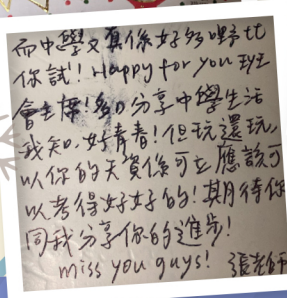 而中學又真係好多嘢比
你試！Happy for you 玩
會主席！多D分享中學生活
我知，好青春！但玩還玩，
以你的天資係可 應該可
以考得好好的！期待你
同我分享你的進步！
miss you guys! 張老師